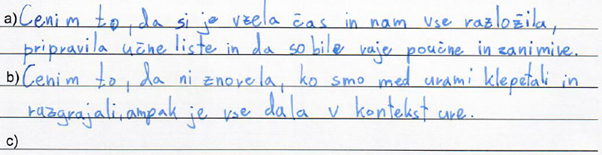 a) Cenim to, da si je vzela čas in nam vse razložila,
pripravila učne liste in da so bile vaje poučne in zanimive.
b) Cenim to, da ni znorela, ko smo med urami klepetali in
razgrajali, ampak je vse dala v kontekst ure.
c)